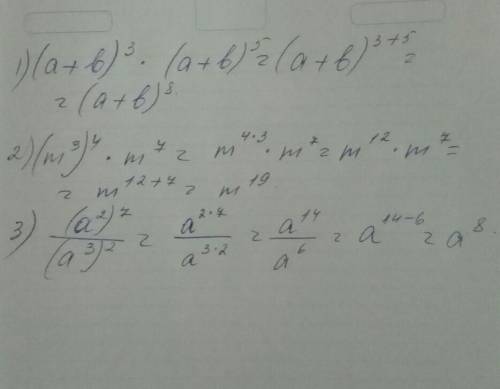 1) (a+b)³ · (a+b)⁵ = (a+b)³⁺⁵ =
= (a+b)⁸.
2) (m³)⁴ · m⁷ = m⁴·³ · m⁷ = m¹² · m⁷ =
= m¹²⁺⁷ = m¹⁹.
3) (a²)⁷/(a³)² = a²·⁷/a³·² = a¹⁴/a⁶ = a¹⁴⁻⁶ = a⁸.